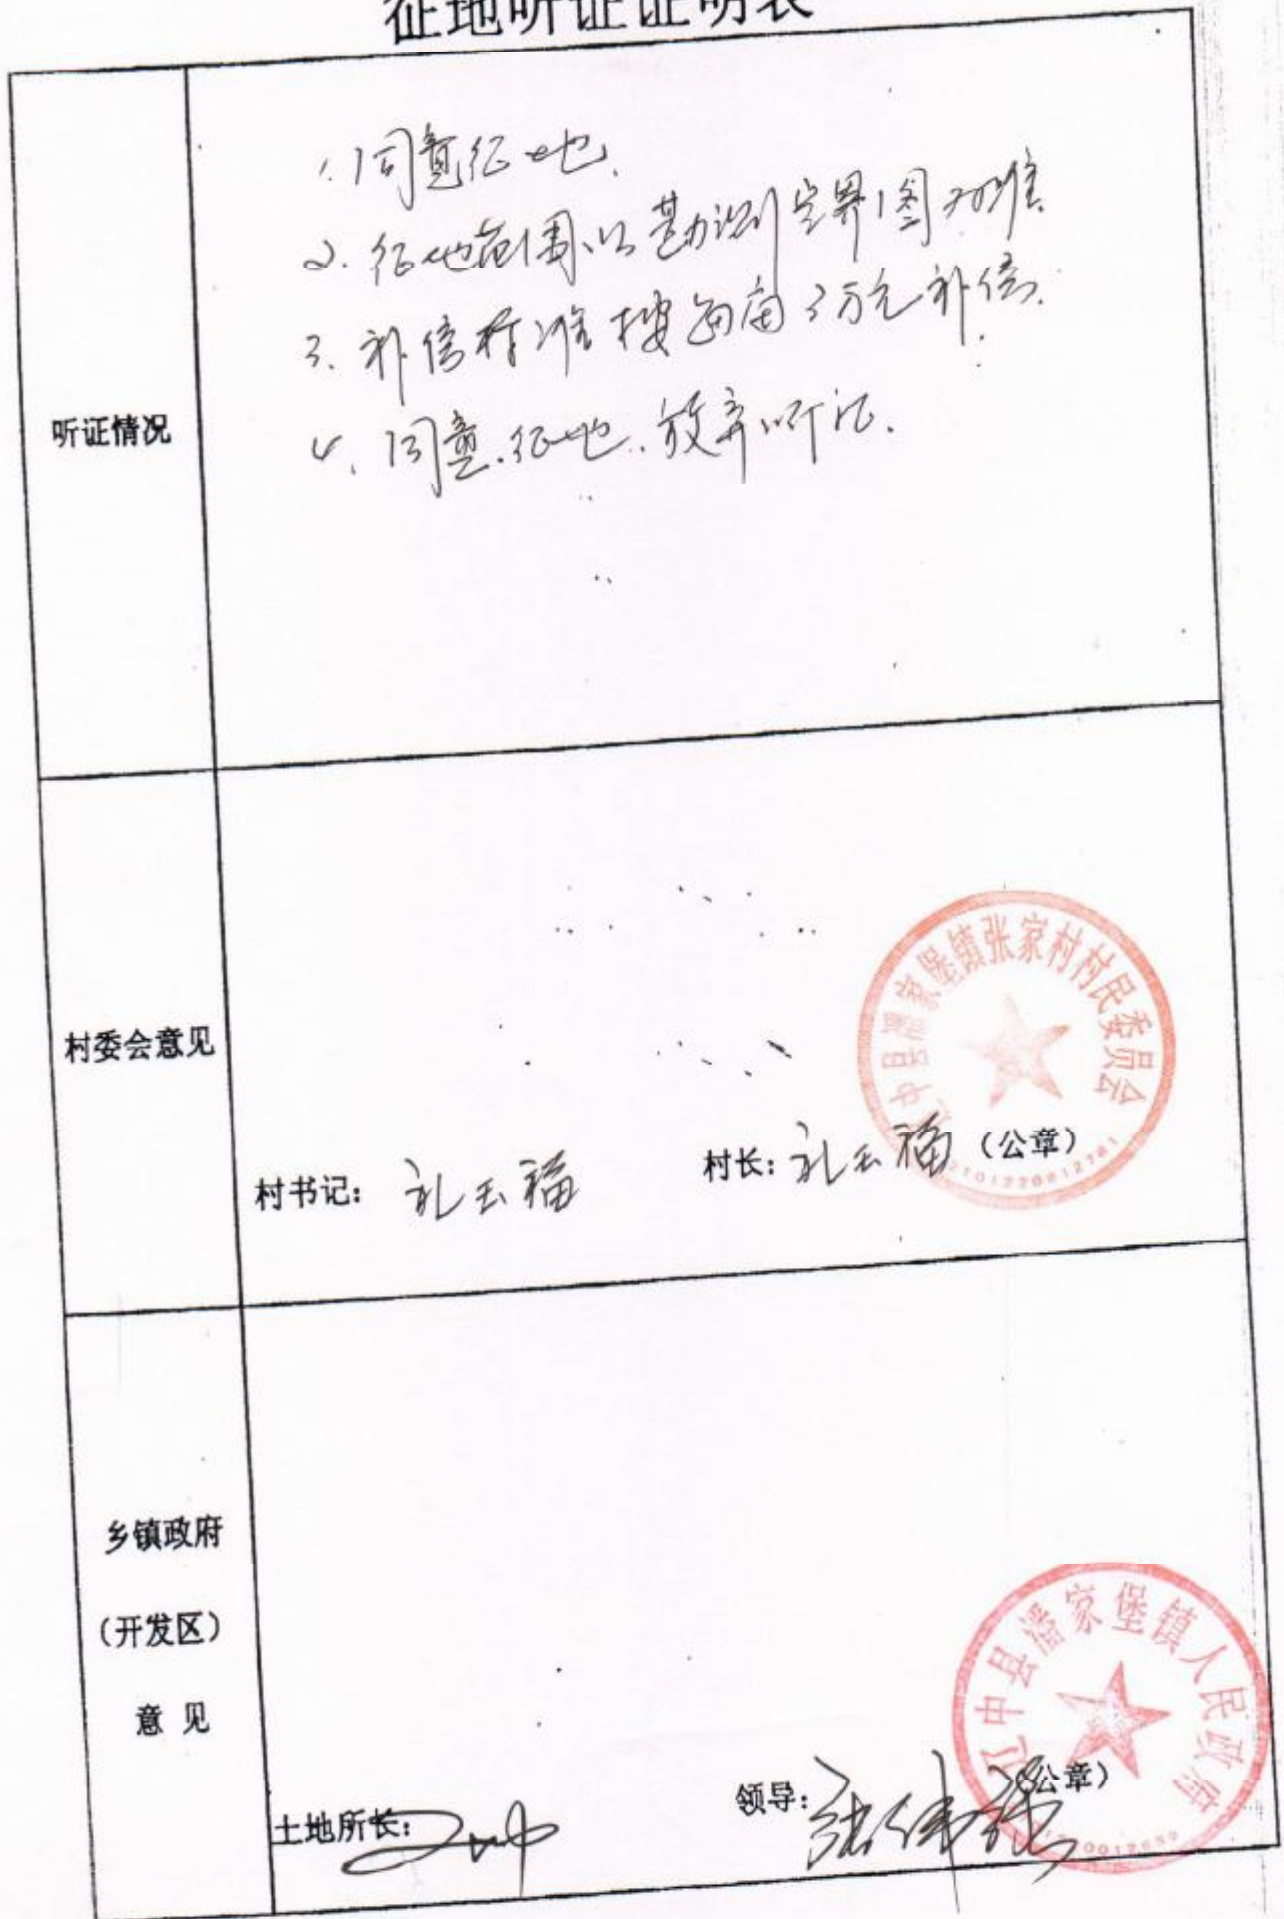 征地听证证明表
听证情况
1.同意征地.
2.征地范围以勘测定界图为准
3.补偿标准按每亩3万元补偿.
4、同意征地.放弃听证.
村委会意见
辽中县潘家堡镇张家村村民委员会
村书记：
村长：
（公章）
乡镇政府
（开发区）
意 见
辽中县潘家堡镇人民政府
土地所长：
领导：
（公章）